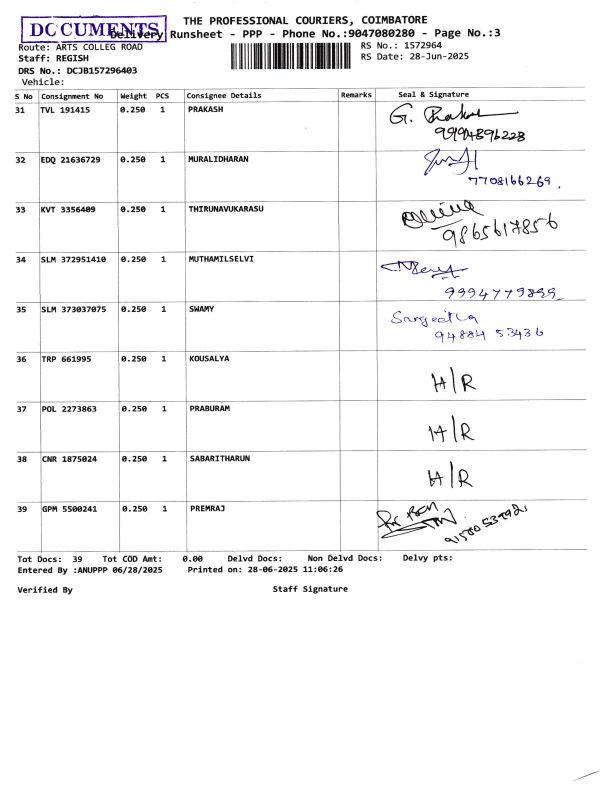 DOCUMENTS
THE PROFESSIONAL COURIERS, COIMBATORE
Delivery Runsheet - PPP - Phone No.:9047080280 - Page No.:3
Route: ARTS COLLEG ROAD
RS No.: 1572964
Staff: REGISH
RS Date: 28-Jun-2025
DRS No.: DCJB157296403
Vehicle:
S No Consignment No Weight PCS Consignee Details Remarks Seal & Signature
31 TVL 191415 0.250 1 PRAKASH G. Prakash
9194896228
32 EDQ 21636729 0.250 1 MURALIDHARAN
7708166269.
33 KVT 3356409 0.250 1 THIRUNAVUKARASU
9865617856
34 SLM 372951410 0.250 1 MUTHAMILSELVI
9994779899
35 SLM 373037075 0.250 1 SWAMY Sangeetha
94884 53436
36 TRP 661995 0.250 1 KOUSALYA H/R
37 POL 2273863 0.250 1 PRABURAM H/R
38 CNR 1875024 0.250 1 SABARITHARUN H/R
39 GPM 5500241 0.250 1 PREMRAJ
Tot Docs: 39 Tot COD Amt: 0.00 Delvd Docs: Non Delvd Docs: Delvy pts:
Entered By :ANUPPP 06/28/2025 Printed on: 28-06-2025 11:06:26
Verified By Staff Signature